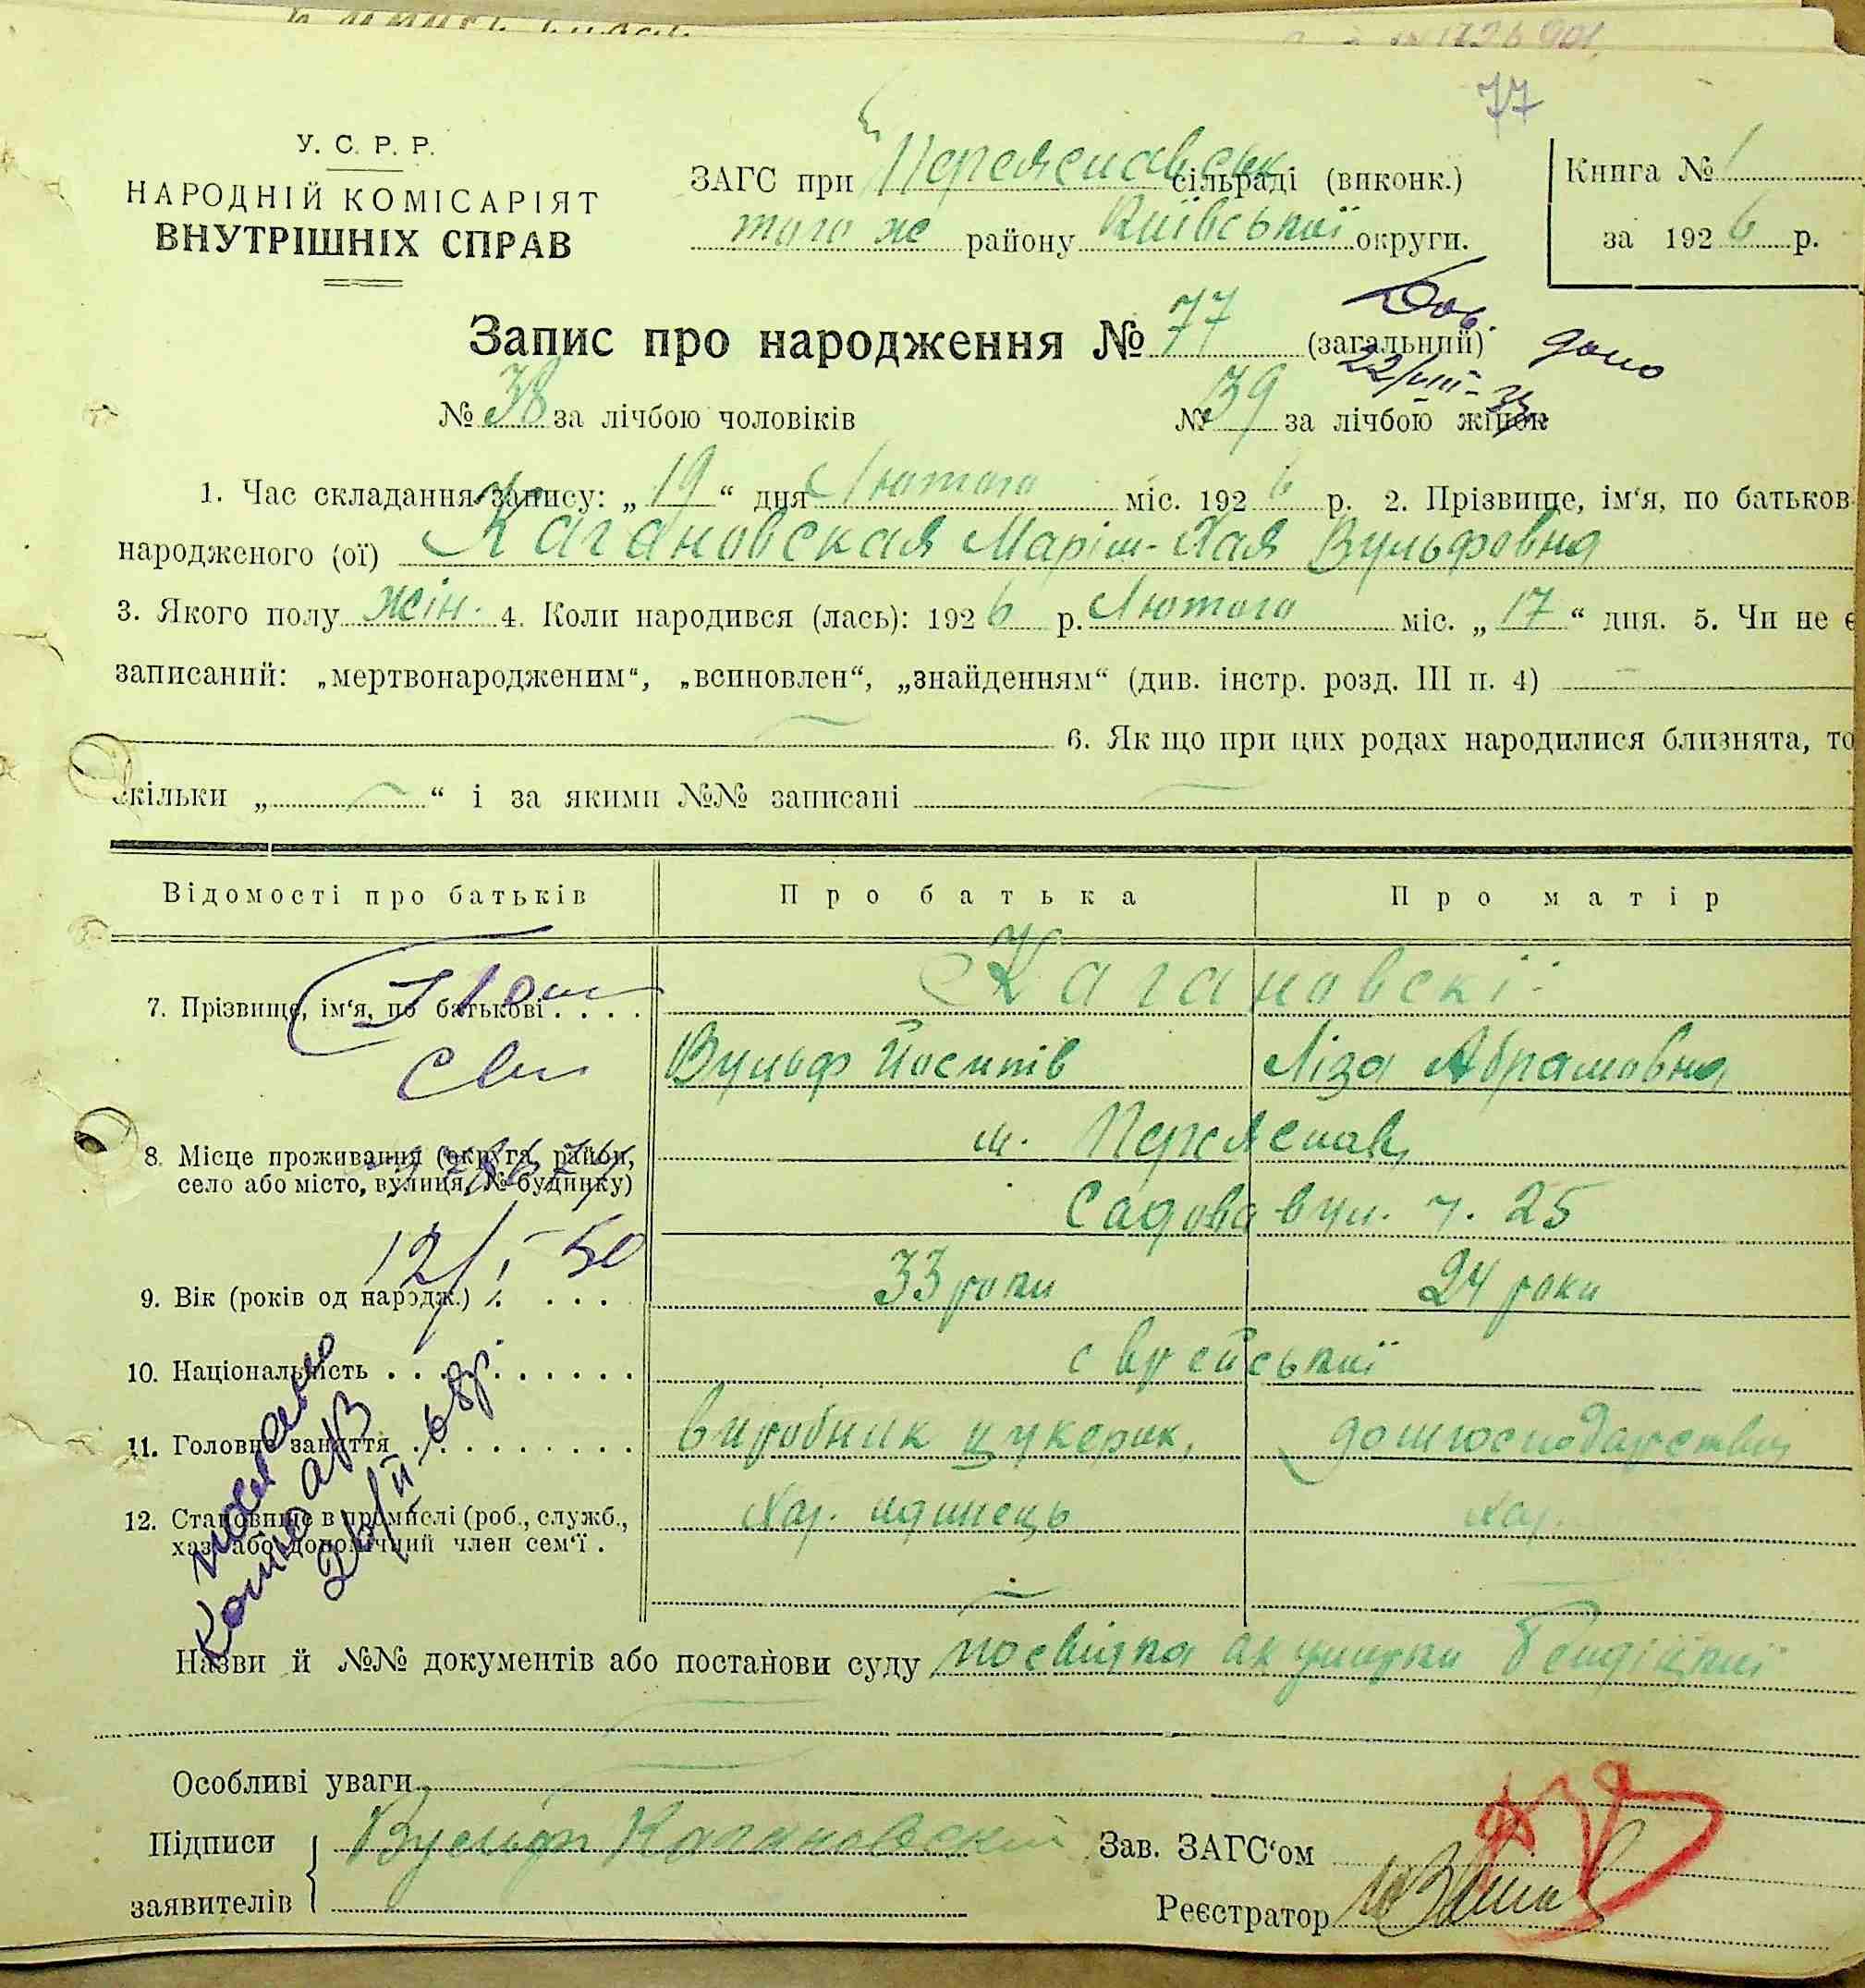 77
У. С. Р. Р.
НАРОДНІЙ КОМІСАРІЯТ
ВНУТРІШНІХ СПРАВ
ЗАГС при Переяславськ сільраді (виконк.)
того же району Київської округи.
Книга № 1
за 1926 р.
Запис про народження № 77 (загальний)
дано
22/VIII-33
№ 38 за лічбою чоловіків № 39 за лічбою жінок
1. Час складання запису: „ 19 “ дня Лютого міс. 1926 р. 2. Прізвище, ім‘я, по батьков
народженого (ої) Кагановская Маріш-Хая Вульфовна
3. Якого полу жін. 4. Коли народився (лась): 1926 р. Лютого міс. „ 17 “ дня. 5. Чи не є
записаний: „мертвонародженим“, „всиновлен“, „знайденням“ (див. інстр. розд. III п. 4)
6. Як що при цих родах народилися близнята, то
скільки „ “ і за якими №№ записані
Відомості про батьків Про батька Про матір
7. Прізвище, ім‘я, по батькові . . . . Кагановскі
Вульф Йосипів Ліза Абрамовна
8. Місце проживання (округа, район,
село або місто, вулиця, № будинку)
м. Переяслав,
Садова вул. ч. 25
12/I-50
9. Вік (років од нарођж.) . . . . 33 роки 24 роки
10. Національність . . . . . . . . . . єврейської
11. Головне заняття . . . . . . . . . виробник цукерок, домгосподарством
12. Становище в промислі (роб., служб.,
хаз. або допомічний член сем‘ї .
Хаз. одинець хаз.
копію
Назви й №№ документів або постанови суду посвідка акушерки
Особливі уваги
Підписи
заявителів
Вульф Кагановский
Зав. ЗАГС‘ом
Реєстратор